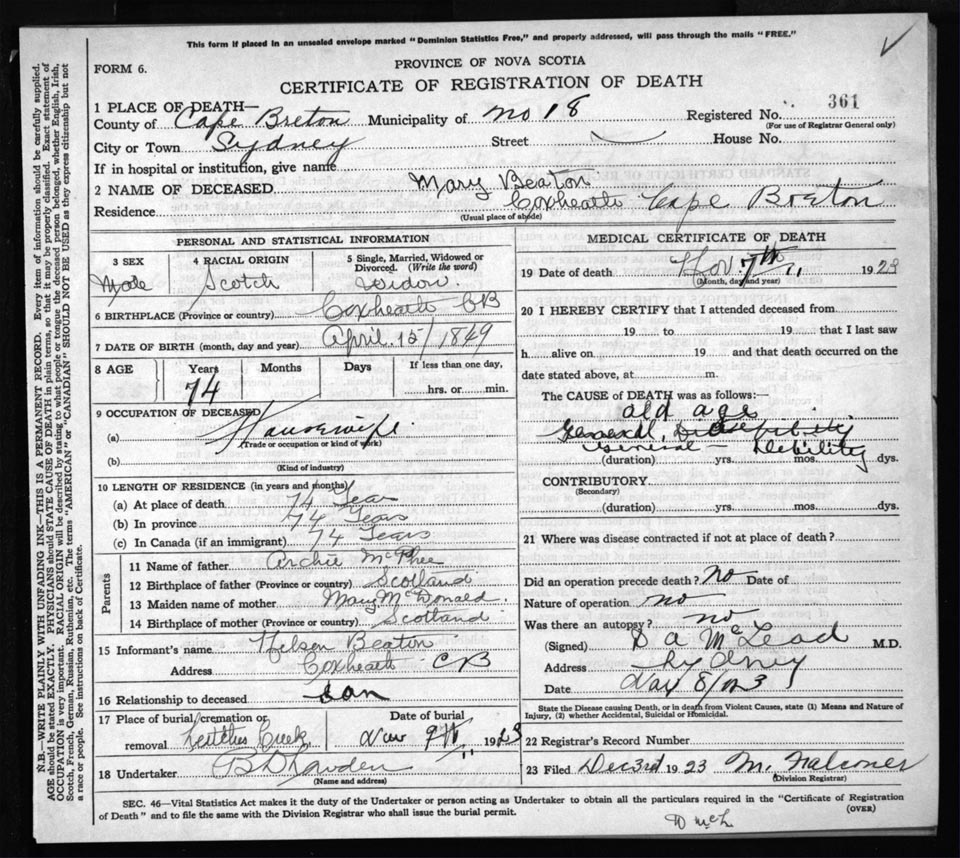 This form if placed in an unsealed envelope marked "Dominion Statistics Free," and properly addressed, will pass through the mails "FREE."
FORM 6.
PROVINCE OF NOVA SCOTIA
CERTIFICATE OF REGISTRATION OF DEATH
1 PLACE OF DEATH—
County of Cape Breton Municipality of No 18 Registered No. 361
(For use of Registrar General only)
City or Town Sydney Street House No.
If in hospital or institution, give name
2 NAME OF DECEASED Mary Beaton
Residence Coxheath Cape Breton
(Usual place of abode)
PERSONAL AND STATISTICAL INFORMATION
3 SEX
4 RACIAL ORIGIN Scotch
5 Single, Married, Widowed or Divorced. (Write the word) Widow.
6 BIRTHPLACE (Province or country) Coxheath CB
7 DATE OF BIRTH (month, day and year) April 15/1849
8 AGE Years Months Days If less than one day,
74 hrs. or min.
9 OCCUPATION OF DECEASED
(a) Housewife.
(Trade or occupation or kind of work)
(b)
(Kind of industry)
10 LENGTH OF RESIDENCE (in years and months)
(a) At place of death 74 Years
(b) In province 74 Years
(c) In Canada (if an immigrant) 74 Years
Parents
11 Name of father Archie McPhee
12 Birthplace of father (Province or country) Scotland
13 Maiden name of mother Mary McDonald.
14 Birthplace of mother (Province or country) Scotland
15 Informant's name Beaton
Address Coxheath CB
16 Relationship to deceased son
17 Place of burial/cremation or removal Leitches Creek Date of burial Nov 9th 11 1923
18 Undertaker
(Name and address)
MEDICAL CERTIFICATE OF DEATH
19 Date of death Nov. 7th 11 1923
(Month, day and year)
20 I HEREBY CERTIFY that I attended deceased from
19 to 19 that I last saw
h alive on 19 and that death occurred on the
date stated above, at m.
The CAUSE of DEATH was as follows:—
old age
General
General Debility
(duration) yrs. mos. dys.
CONTRIBUTORY
(Secondary)
(duration) yrs. mos. dys.
21 Where was disease contracted if not at place of death?
Did an operation precede death? No Date of
Nature of operation no
Was there an autopsy? no
(Signed) D A McLeod M.D.
Address Sydney
Date Nov 8/123
State the Disease causing Death, or in death from Violent Causes, state (1) Means and Nature of
Injury, (2) whether Accidental, Suicidal or Homicidal.
22 Registrar's Record Number
23 Filed Dec 3rd 1923 M. Falconer
(Division Registrar)
SEC. 46—Vital Statistics Act makes it the duty of the Undertaker or person acting as Undertaker to obtain all the particulars required in the "Certificate of Registration
of Death" and to file the same with the Division Registrar who shall issue the burial permit. (OVER)
D McL
N.B.—WRITE PLAINLY WITH UNFADING INK—THIS IS A PERMANENT RECORD. Every item of information should be carefully supplied.
AGE should be stated EXACTLY. PHYSICIANS should STATE CAUSE OF DEATH in plain terms, so that it may be properly classified. Exact statement of
OCCUPATION is very important. RACIAL ORIGIN will be described by stating to what people or tongue the deceased person belonged, whether English, Irish,
Scotch, French, German, Russian, Ruthenian, etc. The terms "AMERICAN" or "CANADIAN" SHOULD NOT BE USED as they express citizenship but not
a race or people. See instructions on back of Certificate.